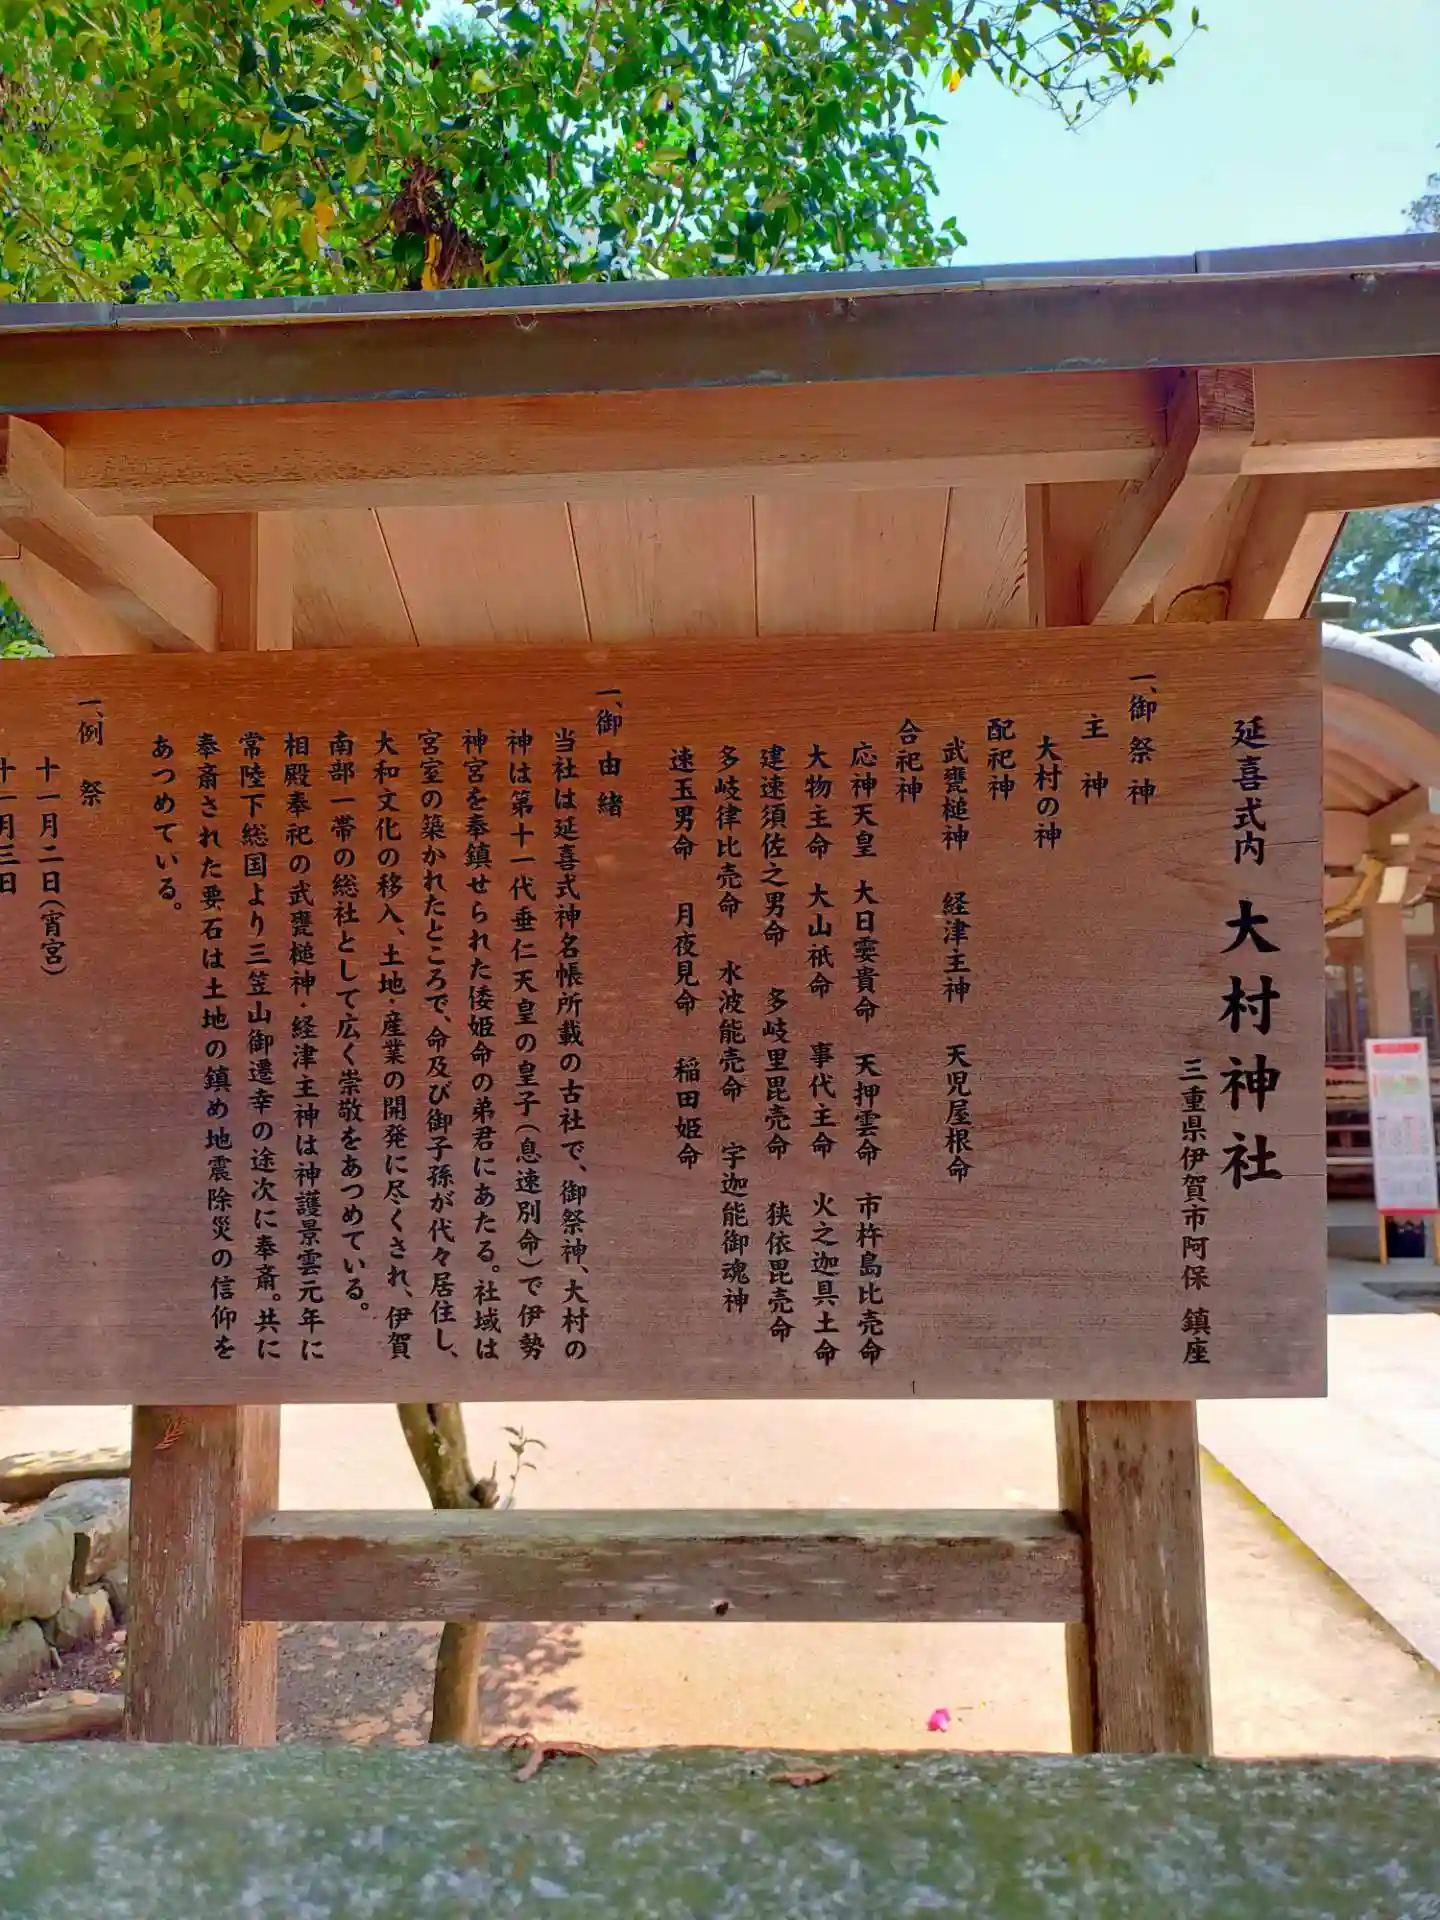 延喜式内 大村神社
三重県伊賀市阿保 鎮座
一、御祭神
主神
大村の神
配祀神
武甕槌神 経津主神 天児屋根命
合祀神
応神天皇 大日孁貴命 天押雲命 市杵島比売命
大物主命 大山祇命 事代主命 火之迦具土命
建速須佐之男命 多岐里毘売命 狭依毘売命
多岐律比売命 水波能売命 宇迦能御魂神
速玉男命 月夜見命 稲田姫命
一、御由緒
当社は延喜式神名帳所載の古社で、御祭神、大村の
神は第十一代垂仁天皇の皇子（息速別命）で伊勢
神宮を奉鎮せられた倭姫命の弟君にあたる。社域は
宮室の築かれたところで、命及び御子孫が代々居住し、
大和文化の移入、土地・産業の開発に尽くされ、伊賀
南部一帯の総社として広く崇敬をあつめている。
相殿奉祀の武甕槌神・経津主神は神護景雲元年に
常陸下総国より三笠山御遷幸の途次に奉斎。共に
奉斎された要石は土地の鎮め地震除災の信仰を
あつめている。
一、例祭
十一月二日（宵宮）
十一月三日